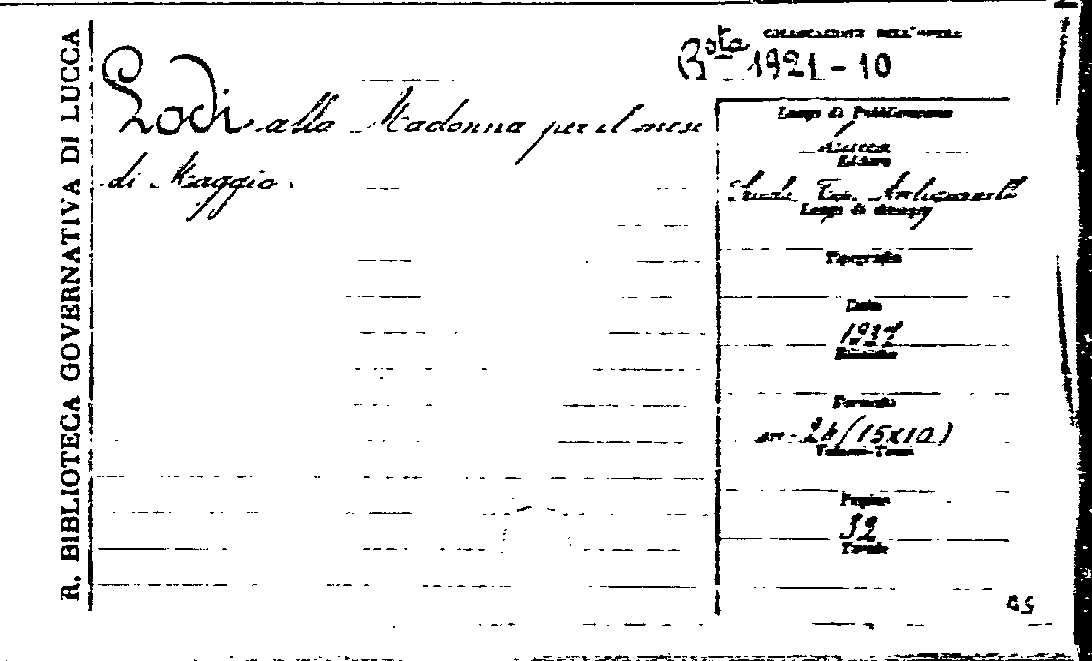 R. BIBLIOTECA GOVERNATIVA DI LUCCA
COLLOCAZIONE DELL'OPERA
Bsta 1921-10
Lodi alla Madonna per il mese
di Maggio.
Luogo di Pubblicazione
Lucca
Editore
Scuola Tip.
Luogo di stampa
Tipografia
Data
1927
Edizione
Formato
24 (15x10)
Volumi-Tomi
Pagine
32
Tavole